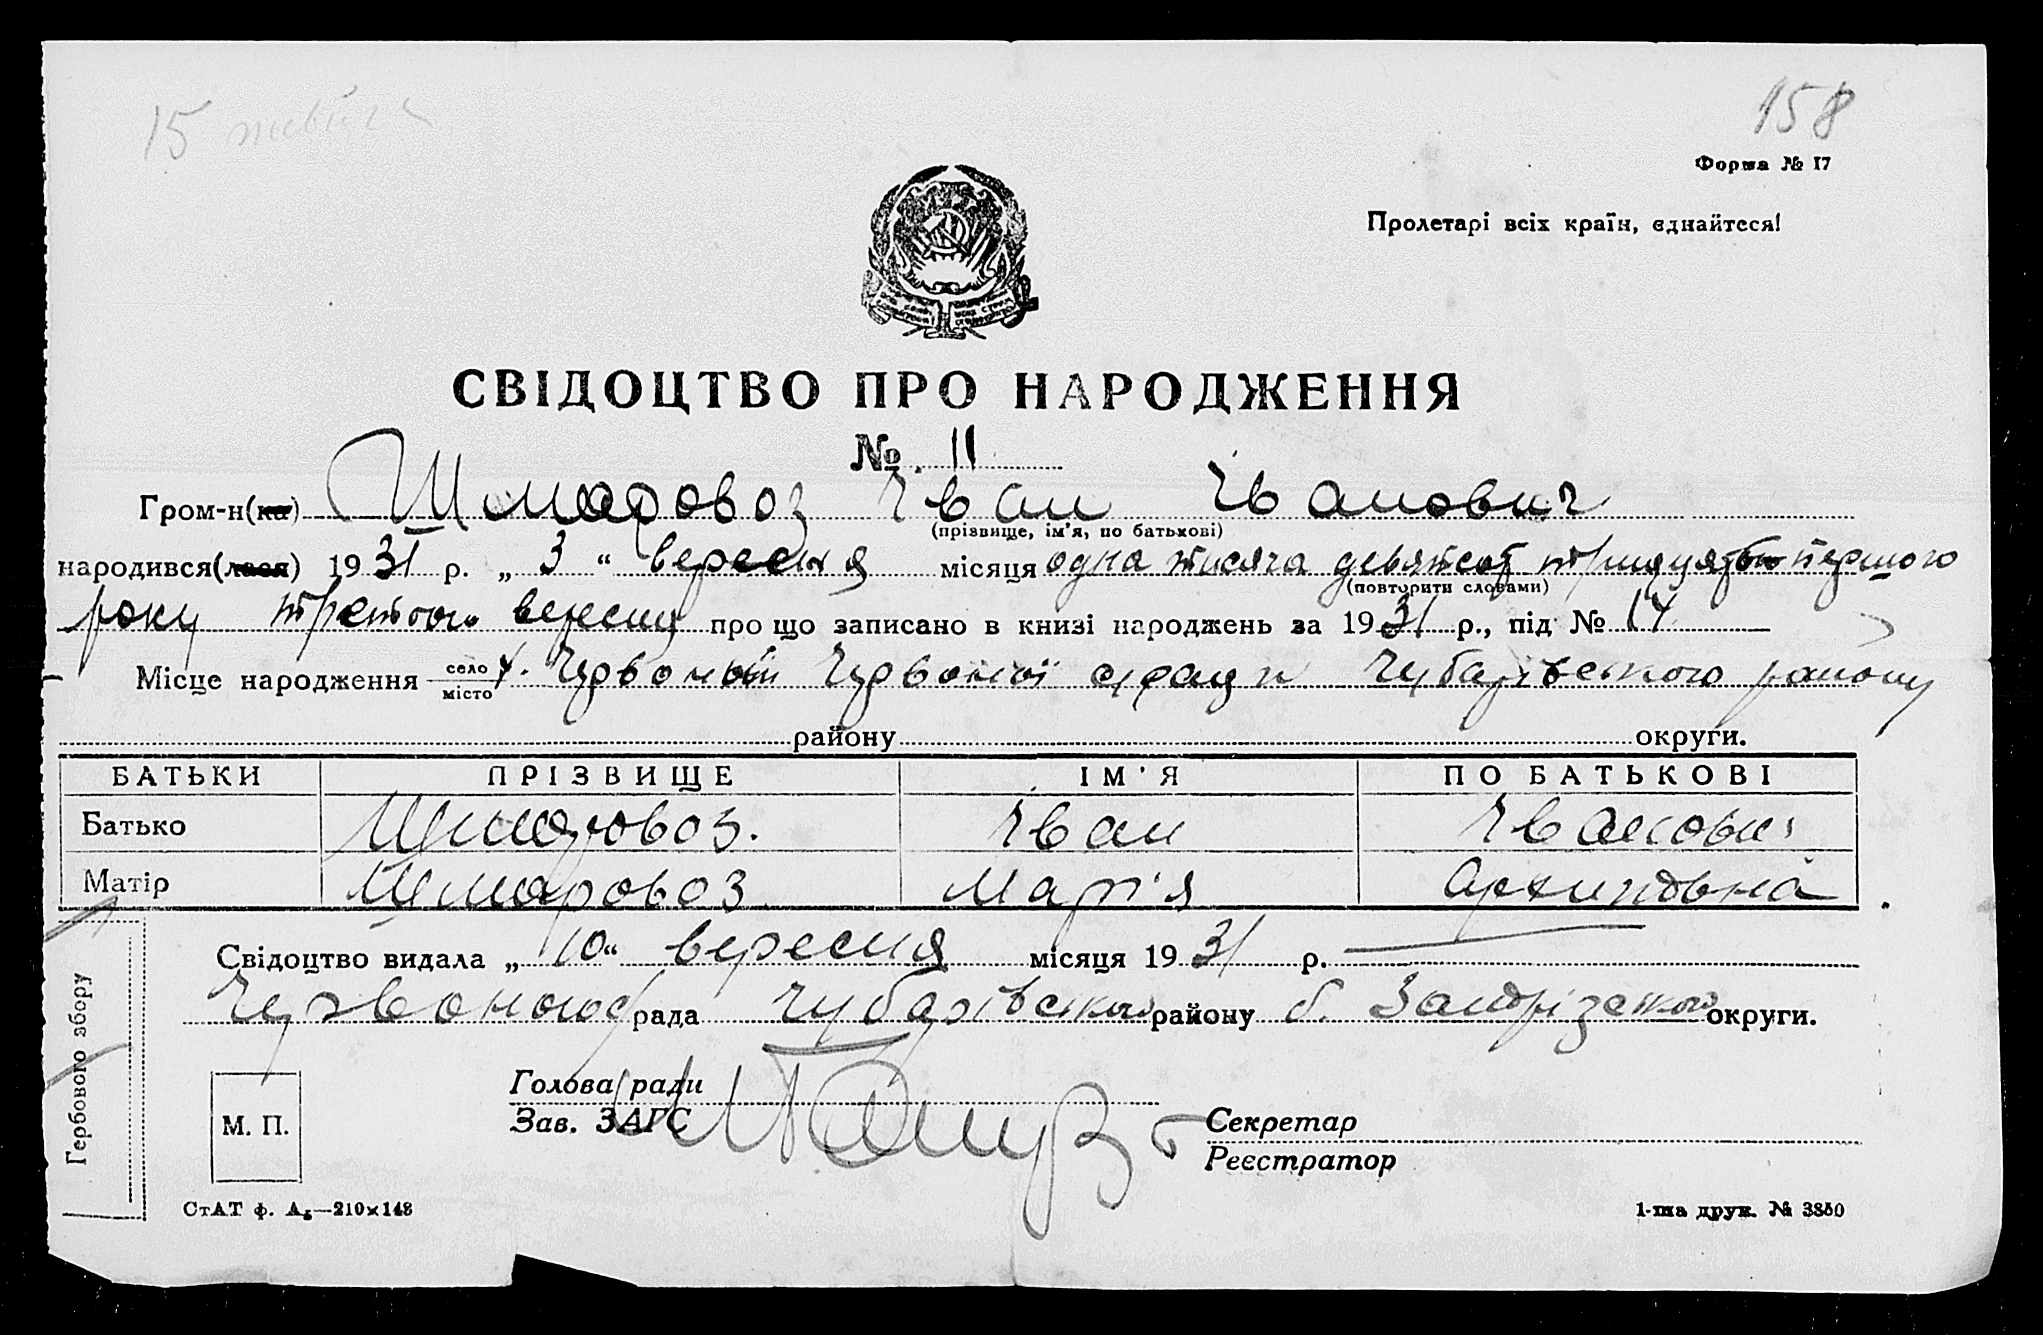 15
158
Форма № 17
Пролетарі всіх країн, єднайтеся!
СВІДОЦТВО ПРО НАРОДЖЕННЯ
№ 11
Гром-н(ка) Шмаровоз Іван Іванович
(прізвище, ім'я, по батькові)
народився(лася) 1931 р. „ 3 “ вересня місяця одна тисяча девятсот тридцять першого
(повторити словами)
року третього вересня про що записано в книзі народжень за 1931 р., під № 14
Місце народження село х. Червоний Червоної сільради Чубарівського району
місто
району округи.
БАТЬКИ ПРІЗВИЩЕ ІМ'Я ПО БАТЬКОВІ
Батько Шмаровоз. Іван Іванович
Матір Шмаровоз Марія Архиповна
Свідоцтво видала „ 10 “ вересня місяця 1931 р.
рада Чубарівського району б. Запорізького округи.
Гербового збору
М. П.
Голова ради
Зав. ЗАГС
Секретар
Реєстратор
СтАТ ф. А₅—210×148
1-ша друк. № 3850